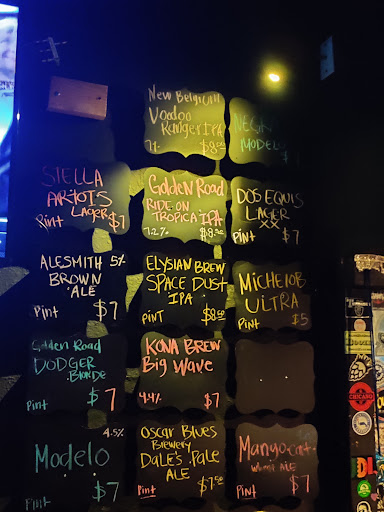 New Belgium
Voodoo
Ranger IPA
7%
$8.50
NEGR
MODELO
STELLA
ARTOIS
LAGER
Pint
$7
Golden Road
RIDE ON
TROPICA IPA
7.2%
$8.50
DOS EQUIS
LAGER
XX
PiNT
$7
ALESMITH 5%
BROWN
ALE
Pint
$7
ELYSIAN BREW
SPACE DUST
IPA
PiNT
$8.50
MicHELOB
ULTRA
PiNT
$5
Golden Road
DODGER
BLONDE
Pint
$7
KONA BREW
Big Wave
4.4%
$7
4.5%
Modelo
Pint
$7
Oscar Blues
Brewery
DALE'S Pale
ALE
Pint
$7.50
Mango cart
Wheat ALE
Pint
$7
CHICAGO